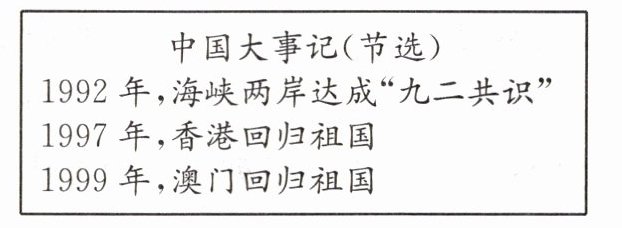 中国大事记(节选)
1992 年,海峡两岸达成“九二共识”
1997 年,香港回归祖国
1999 年,澳门回归祖国